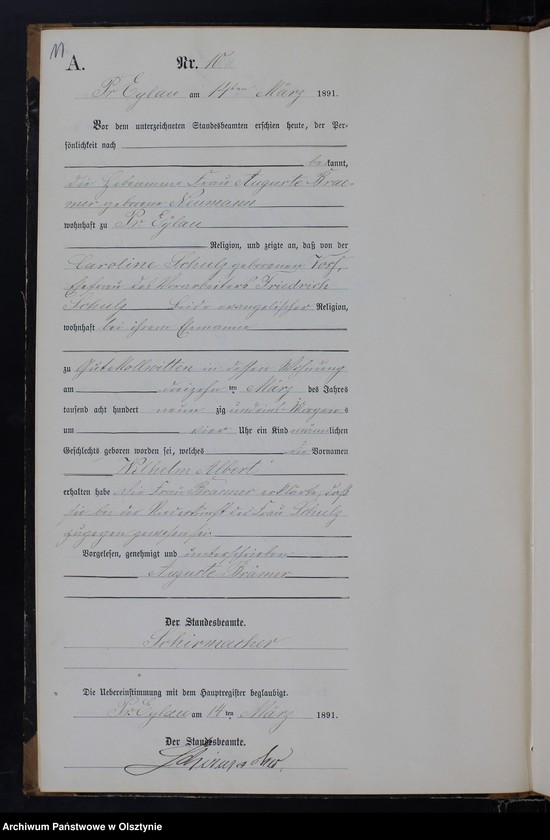 11
A.
Nr. 10
Pr Eylau am 14ten März 1891.
Vor dem unterzeichneten Standesbeamten erschien heute, der Per-
sönlichkeit nach
bekannt,
die Hebamme Frau Auguste Brae-
mer geborne Neumann
wohnhaft zu Pr Eylau
Religion, und zeigte an, daß von der
Caroline Schulz geborenen Torf,
Ehefrau des Vorarbeiters Friedrich
Schulz beide evangelischer Religion,
wohnhaft bei ihrem Ehemanne
zu Gute Wollwitten in dessen Wohnung
am dreizehn ten März des Jahres
tausend acht hundert neun zig und eins Morgens
um vier Uhr ein Kind männlichen
Geschlechts geboren worden sei, welches die Vornamen
Wilhelm Albert
erhalten habe Die Frau Braemer erklärte, daß
sie bei der Niederkunft der Frau Schulz
zugegen gewesen sei
Vorgelesen, genehmigt und unterschrieben
Auguste Brämer
Der Standesbeamte.
Schirmacher
Die Uebereinstimmung mit dem Hauptregister beglaubigt.
Pr Eylau am 14 ten März 1891.
Der Standesbeamte.
Schirmacher.
Archiwum Państwowe w Olsztynie